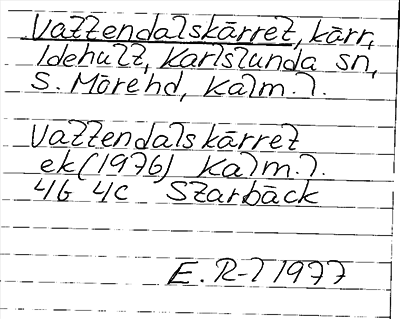 Vattendalskärret, kärr,
Idehult, Karlslunda sn,
S. Mörehd, Kalm.l.
Vattendalskärret
ek (1976) Kalm.l.
4G 4c Starbäck
E. R-l 1977